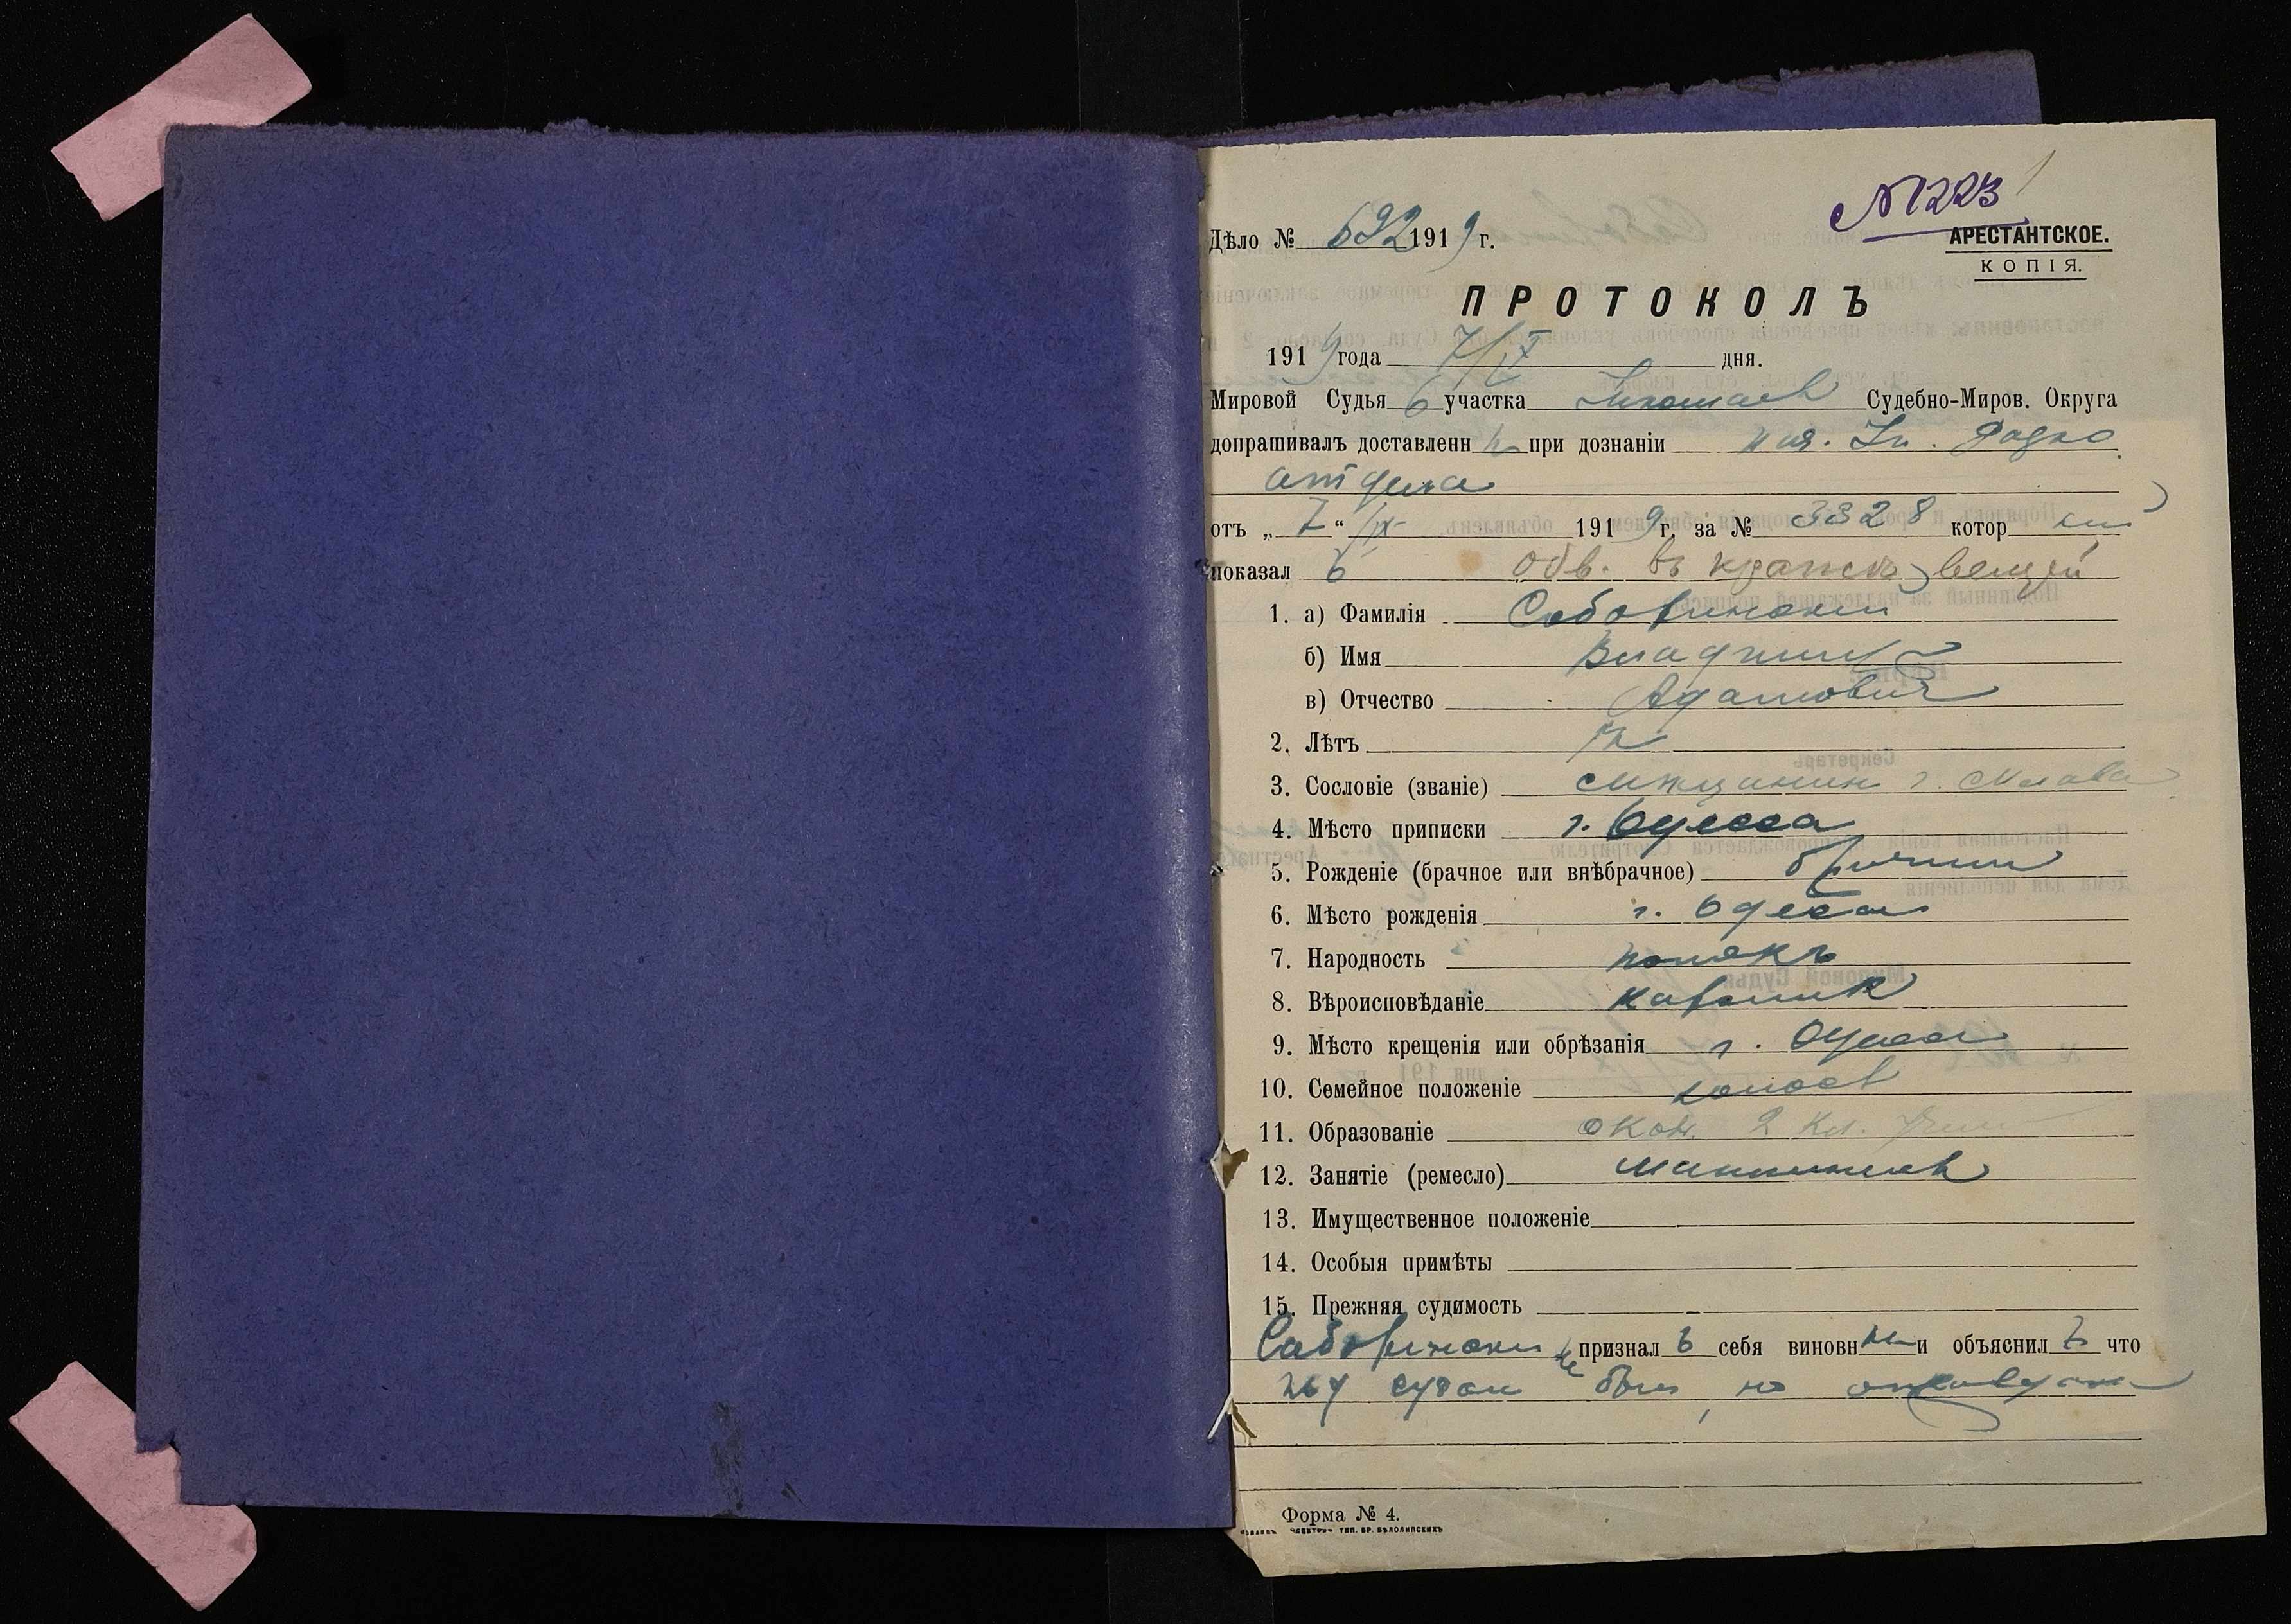 № 1223
Дѣло № 692 1919 г.
АРЕСТАНТСКОЕ.
КОПІЯ.
ПРОТОКОЛЪ
1919 года 7/IX дня.
Мировой Судья 6 участка Судебно-Миров. Округа
допрашивалъ доставленн при дознаніи
отъ „ 7 “ /IX 1919 г. за № 3328 котор
показал ъ Обв. въ кражѣ вещей
1. а) Фамилія
б) Имя Владимір
в) Отчество Адамович
2. Лѣтъ
3. Сословіе (званіе) мѣщанин г.
4. Мѣсто приписки г. Одесса
5. Рожденіе (брачное или внѣбрачное) брачный
6. Мѣсто рожденія г. Одесса
7. Народность полякъ
8. Вѣроисповѣданіе католик
9. Мѣсто крещенія или обрѣзанія г. Одесса
10. Семейное положеніе холост
11. Образованіе окон. 2 кл. учил
12. Занятіе (ремесло)
13. Имущественное положеніе
14. Особыя примѣты
15. Прежняя судимость
не признал ъ себя виновным и объяснил ъ что
под судом был, но оправдан
Форма № 4.
ТИП. БР. БѢЛОЛИПСКИХЪ